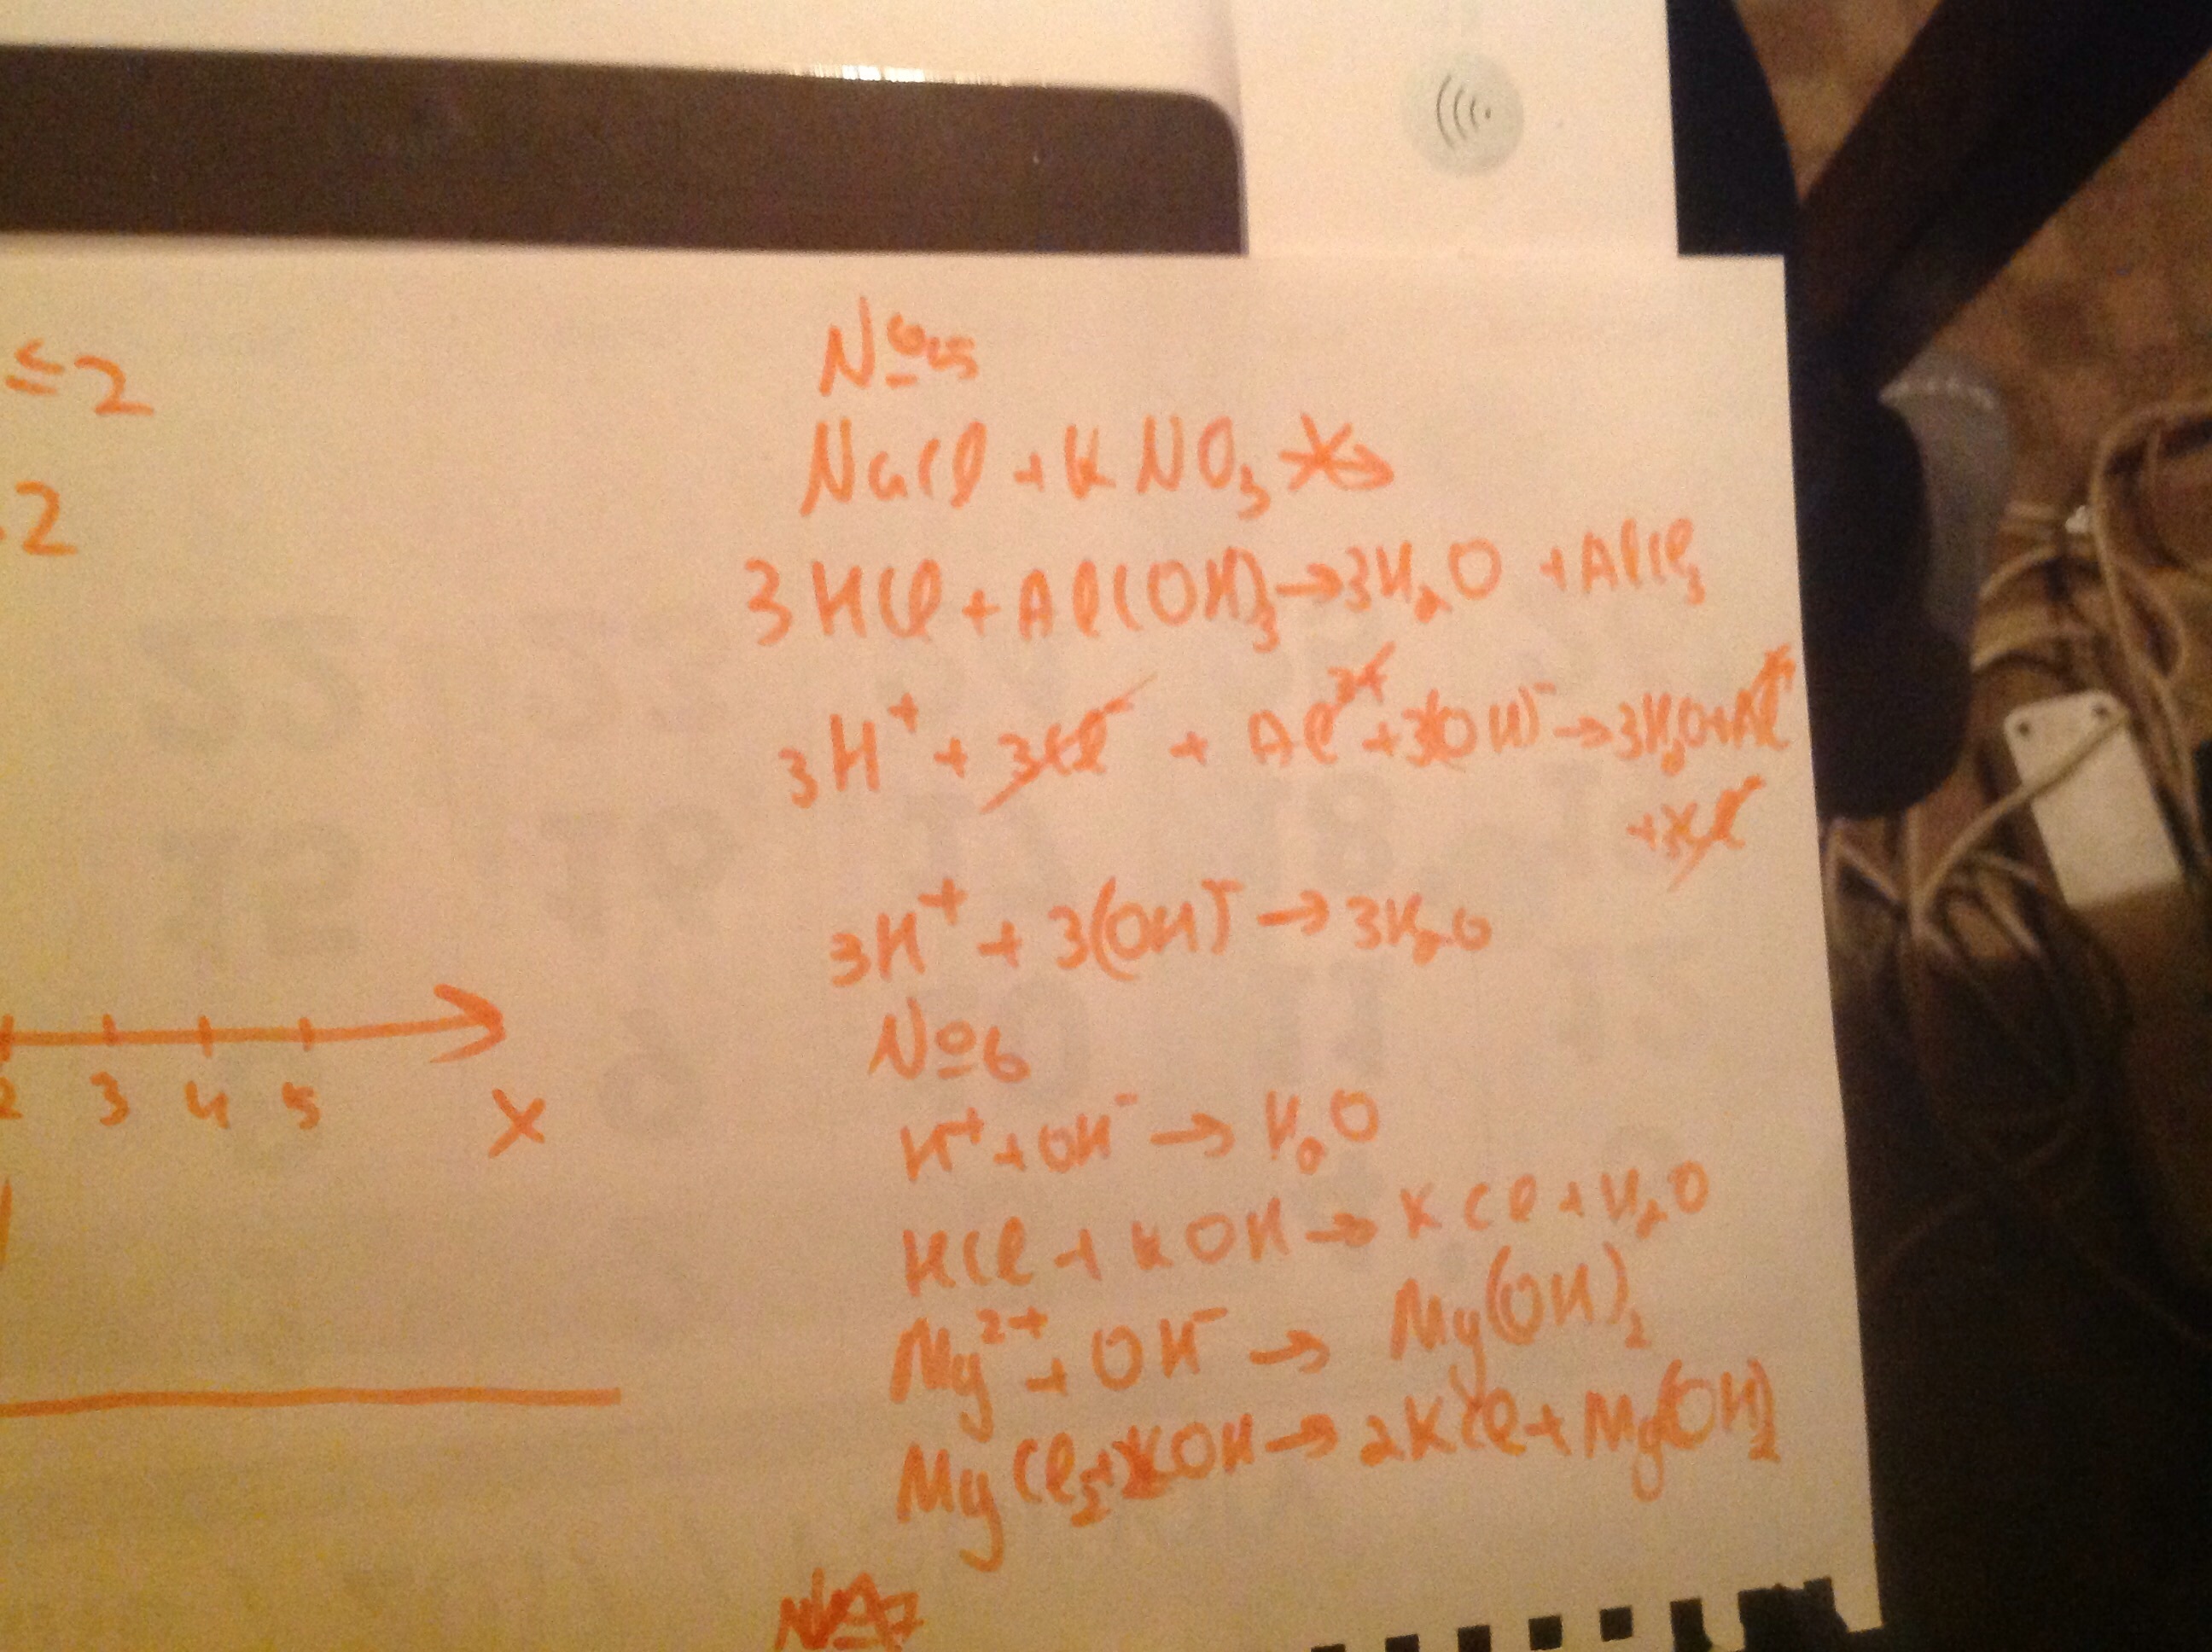 ≤2
2
2 3 4 5 X
№5
NaCl + KNO₃ ↛
3HCl + Al(OH)₃ → 3H₂O + AlCl₃
3H⁺ + 3Cl⁻ + Al³⁺ + 3(OH)⁻ → 3H₂O + Al³⁺
+ 3Cl⁻
3H⁺ + 3(OH)⁻ → 3H₂O
№6
H⁺ + OH⁻ → H₂O
HCl + KOH → KCl + H₂O
Mg²⁺ + OH⁻ → Mg(OH)₂
MgCl₂ + 2KOH → 2KCl + Mg(OH)₂
№7